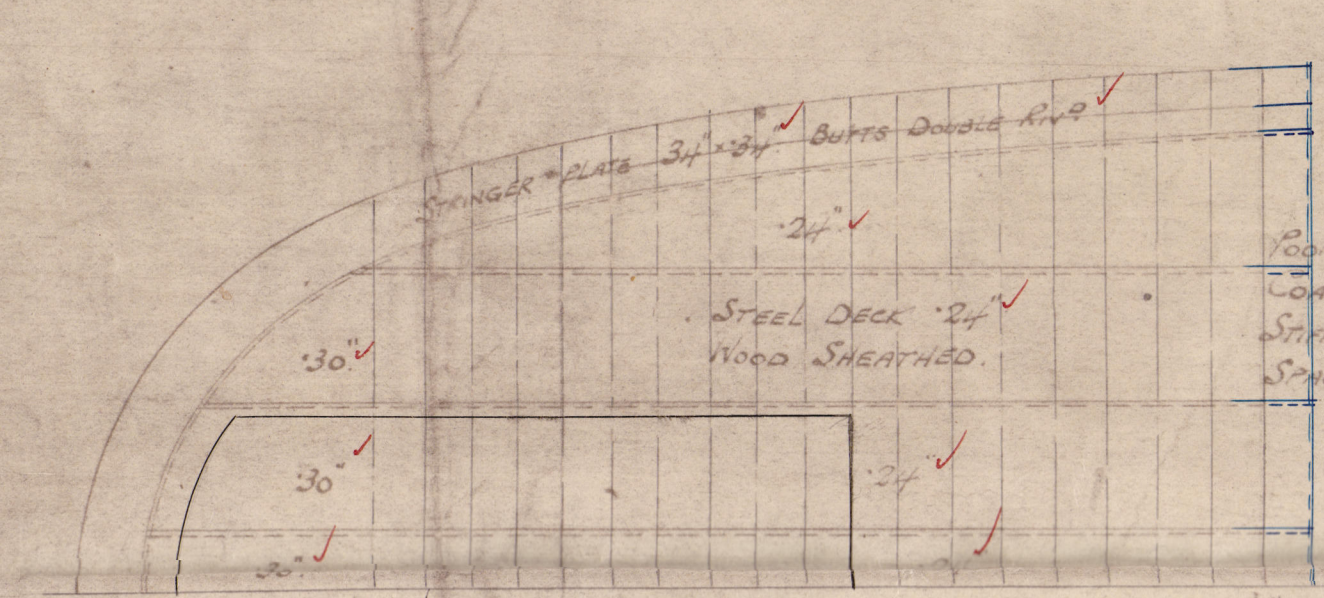 STRINGER PLATE 34" × ·34" BUTTS DOUBLE RIVD
·24"
STEEL DECK ·24"
WOOD SHEATHED.
·30"
·30"
·24"
·30"